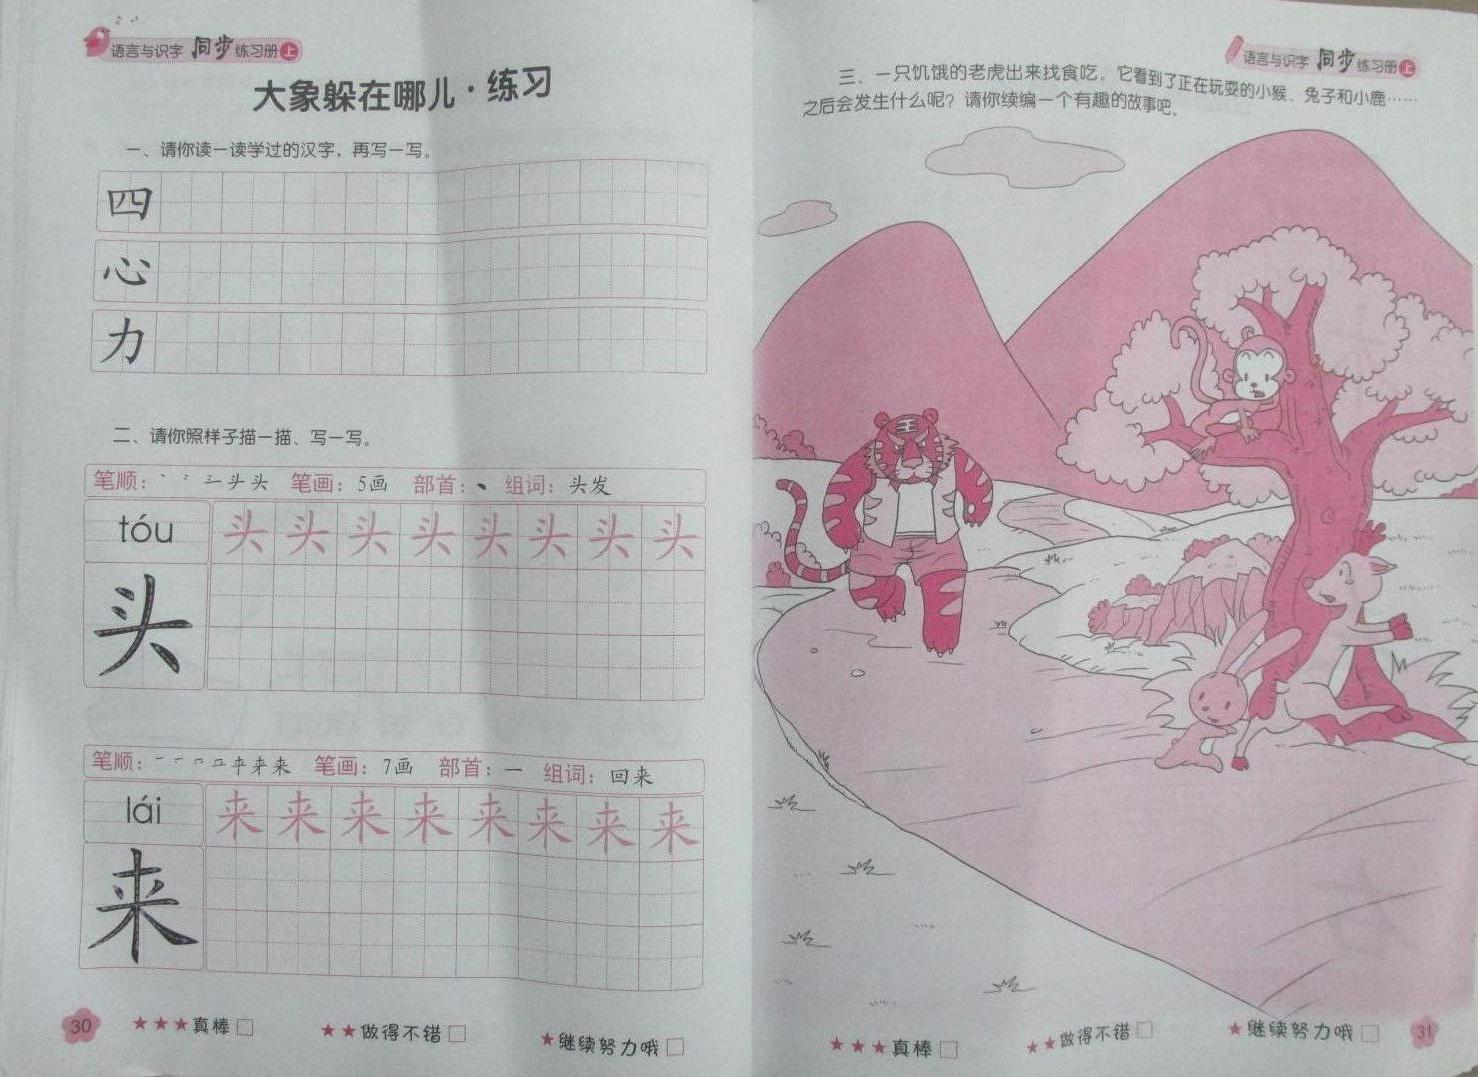 语言与识字 同步 练习册 上
大象躲在哪儿·练习
一、请你读一读学过的汉字，再写一写。
四
心
力
二、请你照样子描一描、写一写。
笔顺： 头 笔画：5画 部首：丶 组词：头发
tóu 头 头 头 头 头 头 头 头
头
笔顺： 来 笔画：7画 部首：一 组词：回来
lái 来 来 来 来 来 来 来 来
来
30 ★★★真棒□ ★★做得不错□ ★继续努力哦□
语言与识字 同步 练习册 上
三、一只饥饿的老虎出来找食吃。它看到了正在玩耍的小猴、兔子和小鹿……
之后会发生什么呢？请你续编一个有趣的故事吧。
王
★★★真棒□ ★★做得不错□ ★继续努力哦□ 31